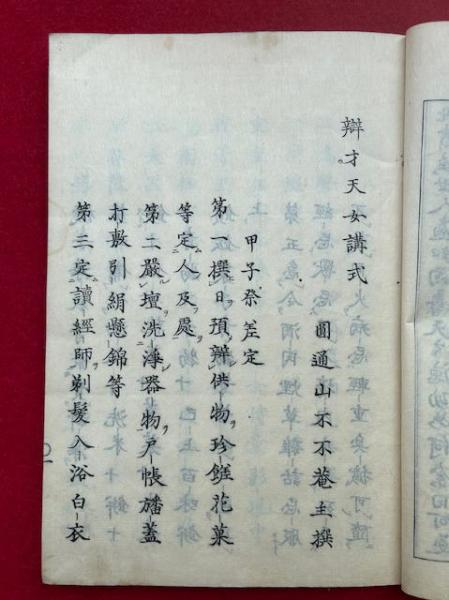 辯才天女講式
圓通山不不菴主撰
甲子祭差定
第一撰日預辨供物珍
花菓
等定人及處
第二嚴壇洗淨器物戸帳旛蓋
打敷引絹懸錦等
第三定讀經師剃髮入浴白衣